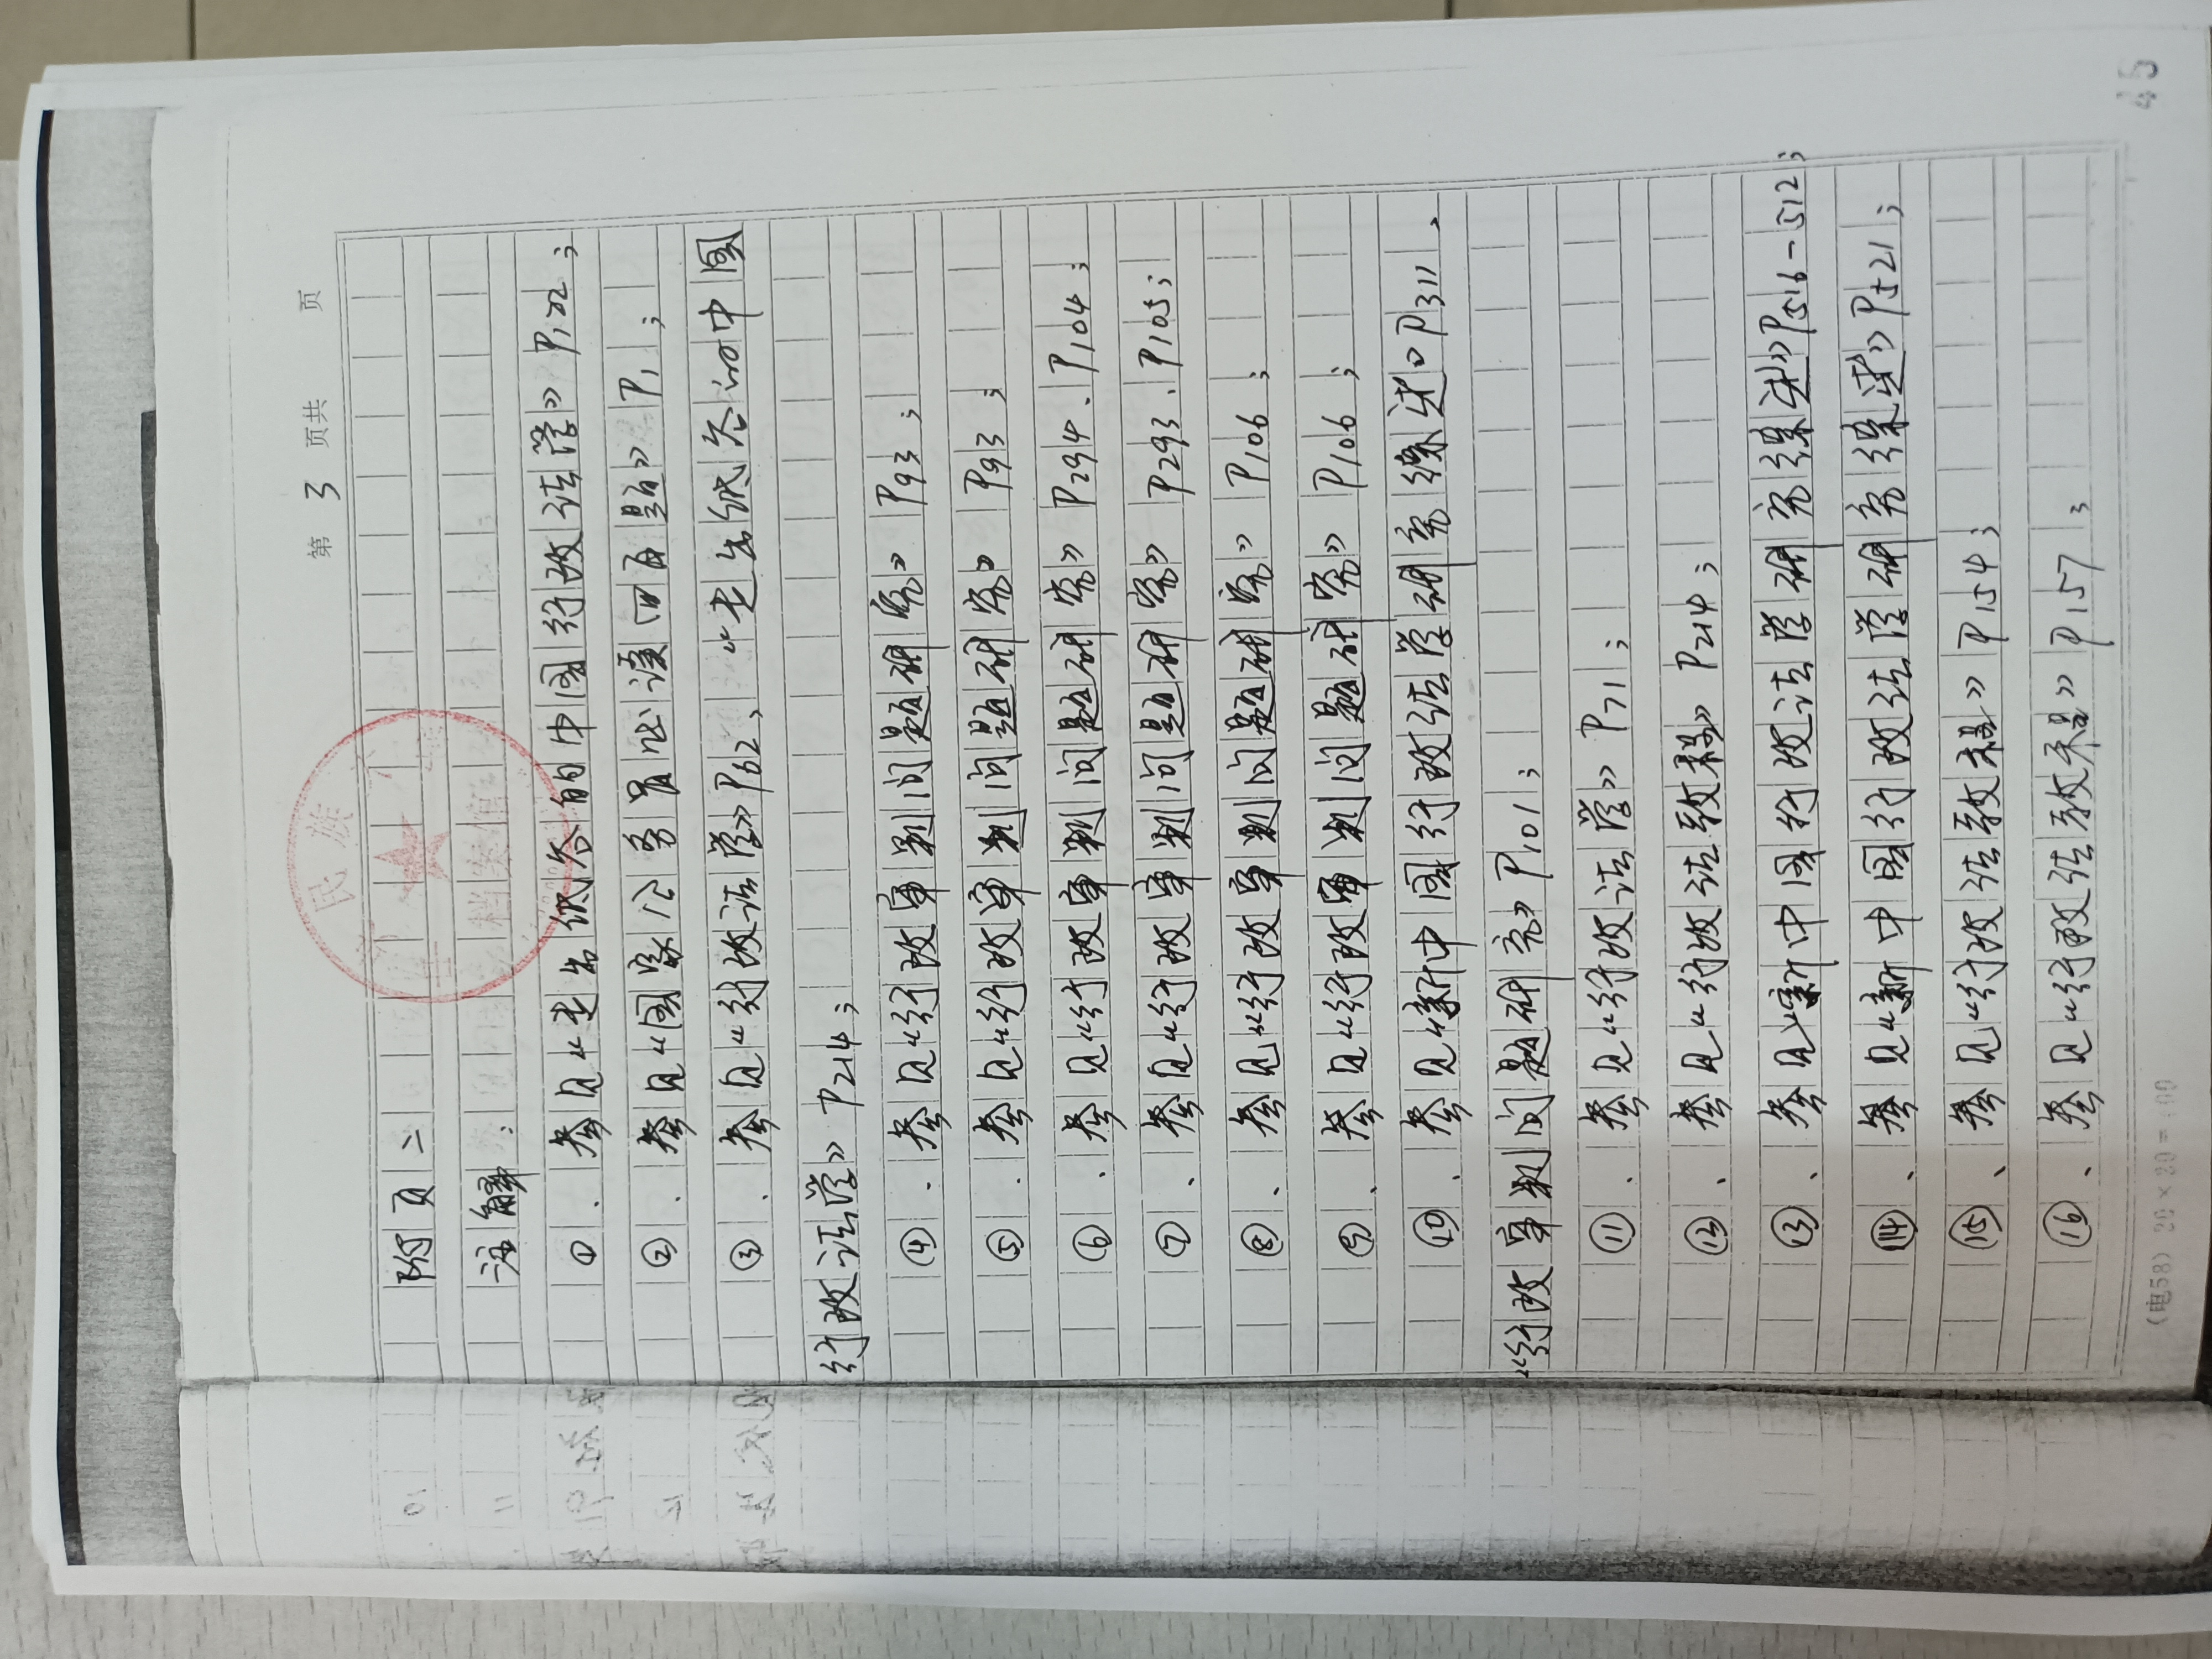 第 3 页共 页
附页二
注解:
①、参见“走出低谷的中国行政法学》P122;
②、参见“国家公务员必读四百题》P1;
③、参见“行政法学》P62、“走出低谷的中国
行政法学》P214;
④、参见“行政审判问题研究》P93;
⑤、参见“行政审判问题研究》P93;
⑥、参见“行政审判问题研究》P294、P104;
⑦、参见“行政审判问题研究》P293、P105;
⑧、参见“行政审判问题研究》P106;
⑨、参见“行政审判问题研究》P106;
⑩、参见“新中国行政法学研究综述》P311、
“行政审判问题研究》P101;
⑪、参见“行政法学》P71;
⑫、参见“行政法教程》P214;
⑬、参见“新中国行政法学研究综述》P516-512;
⑭、参见“新中国行政法学研究综述》P521;
⑮、参见“行政法教程》P154;
⑯、参见“行政法教程》P157;
(电58) 20×20=400
45
民族
档案